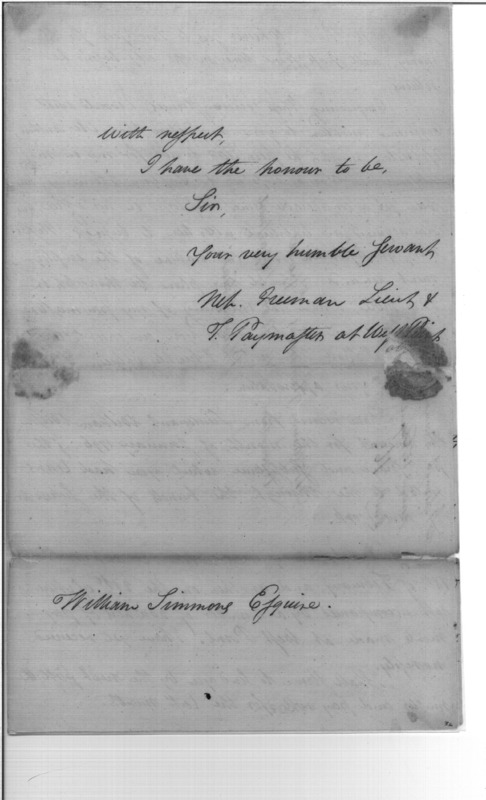 With respect,
I have the honour to be,
Sir,
Your very humble Servant,
Neh. Freeman Lieut &
T. Paymaster at West Point
William Simmons Esquire.